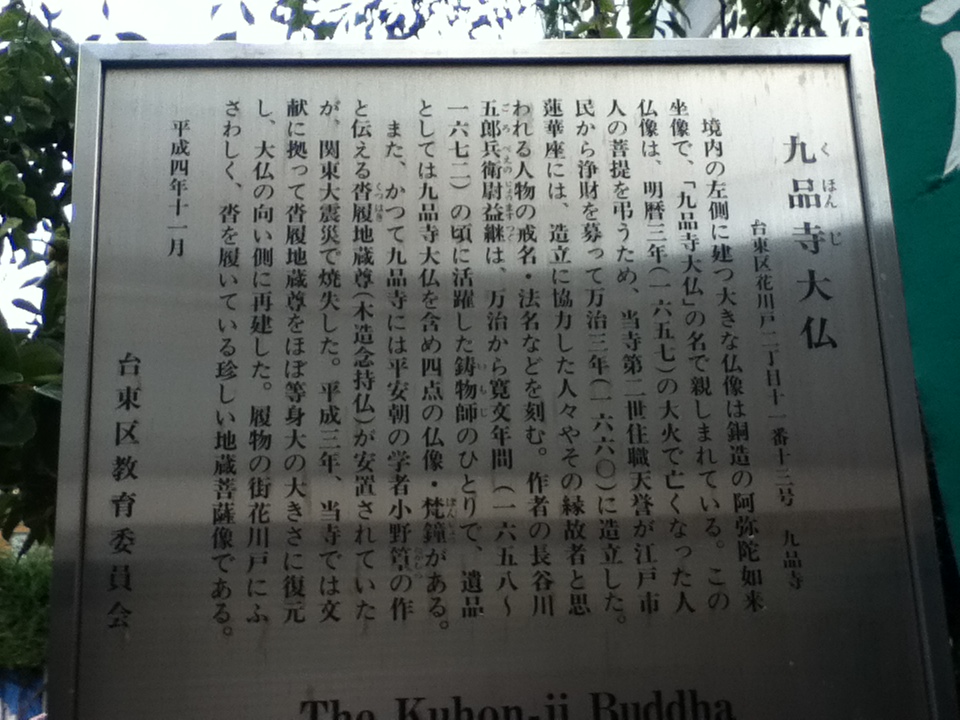 九品寺大仏
くほんじ
台東区花川戸二丁目十一番十三号 九品寺
境内の左側に建つ大きな仏像は銅造の阿弥陀如来
坐像で、「九品寺大仏」の名で親しまれている。この
仏像は、明暦三年(一六五七)の大火で亡くなった人
人の菩提を弔うため、当寺第二世住職天誉が江戸市
民から浄財を募って万治三年(一六六〇)に造立した。
蓮華座には、造立に協力した人々やその縁故者と思
われる人物の戒名・法名などを刻む。作者の長谷川
五郎兵衛尉益継は、万治から寛文年間(一六五八〜
ごろべえのじょうますつぐ
一六七二)の頃に活躍した鋳物師のひとりで、遺品
いもじ
としては九品寺大仏を含め四点の仏像・梵鐘がある。
ぼんしょう
また、かつて九品寺には平安朝の学者小野篁の作
と伝える沓履地蔵尊(木造念持仏)が安置されていた
くつはき
が、関東大震災で焼失した。平成三年、当寺では文
献に拠って沓履地蔵尊をほぼ等身大の大きさに復元
し、大仏の向い側に再建した。履物の街花川戸にふ
さわしく、沓を履いている珍しい地蔵菩薩像である。
平成四年十一月
台東区教育委員会
The Kuhon-ji Buddha